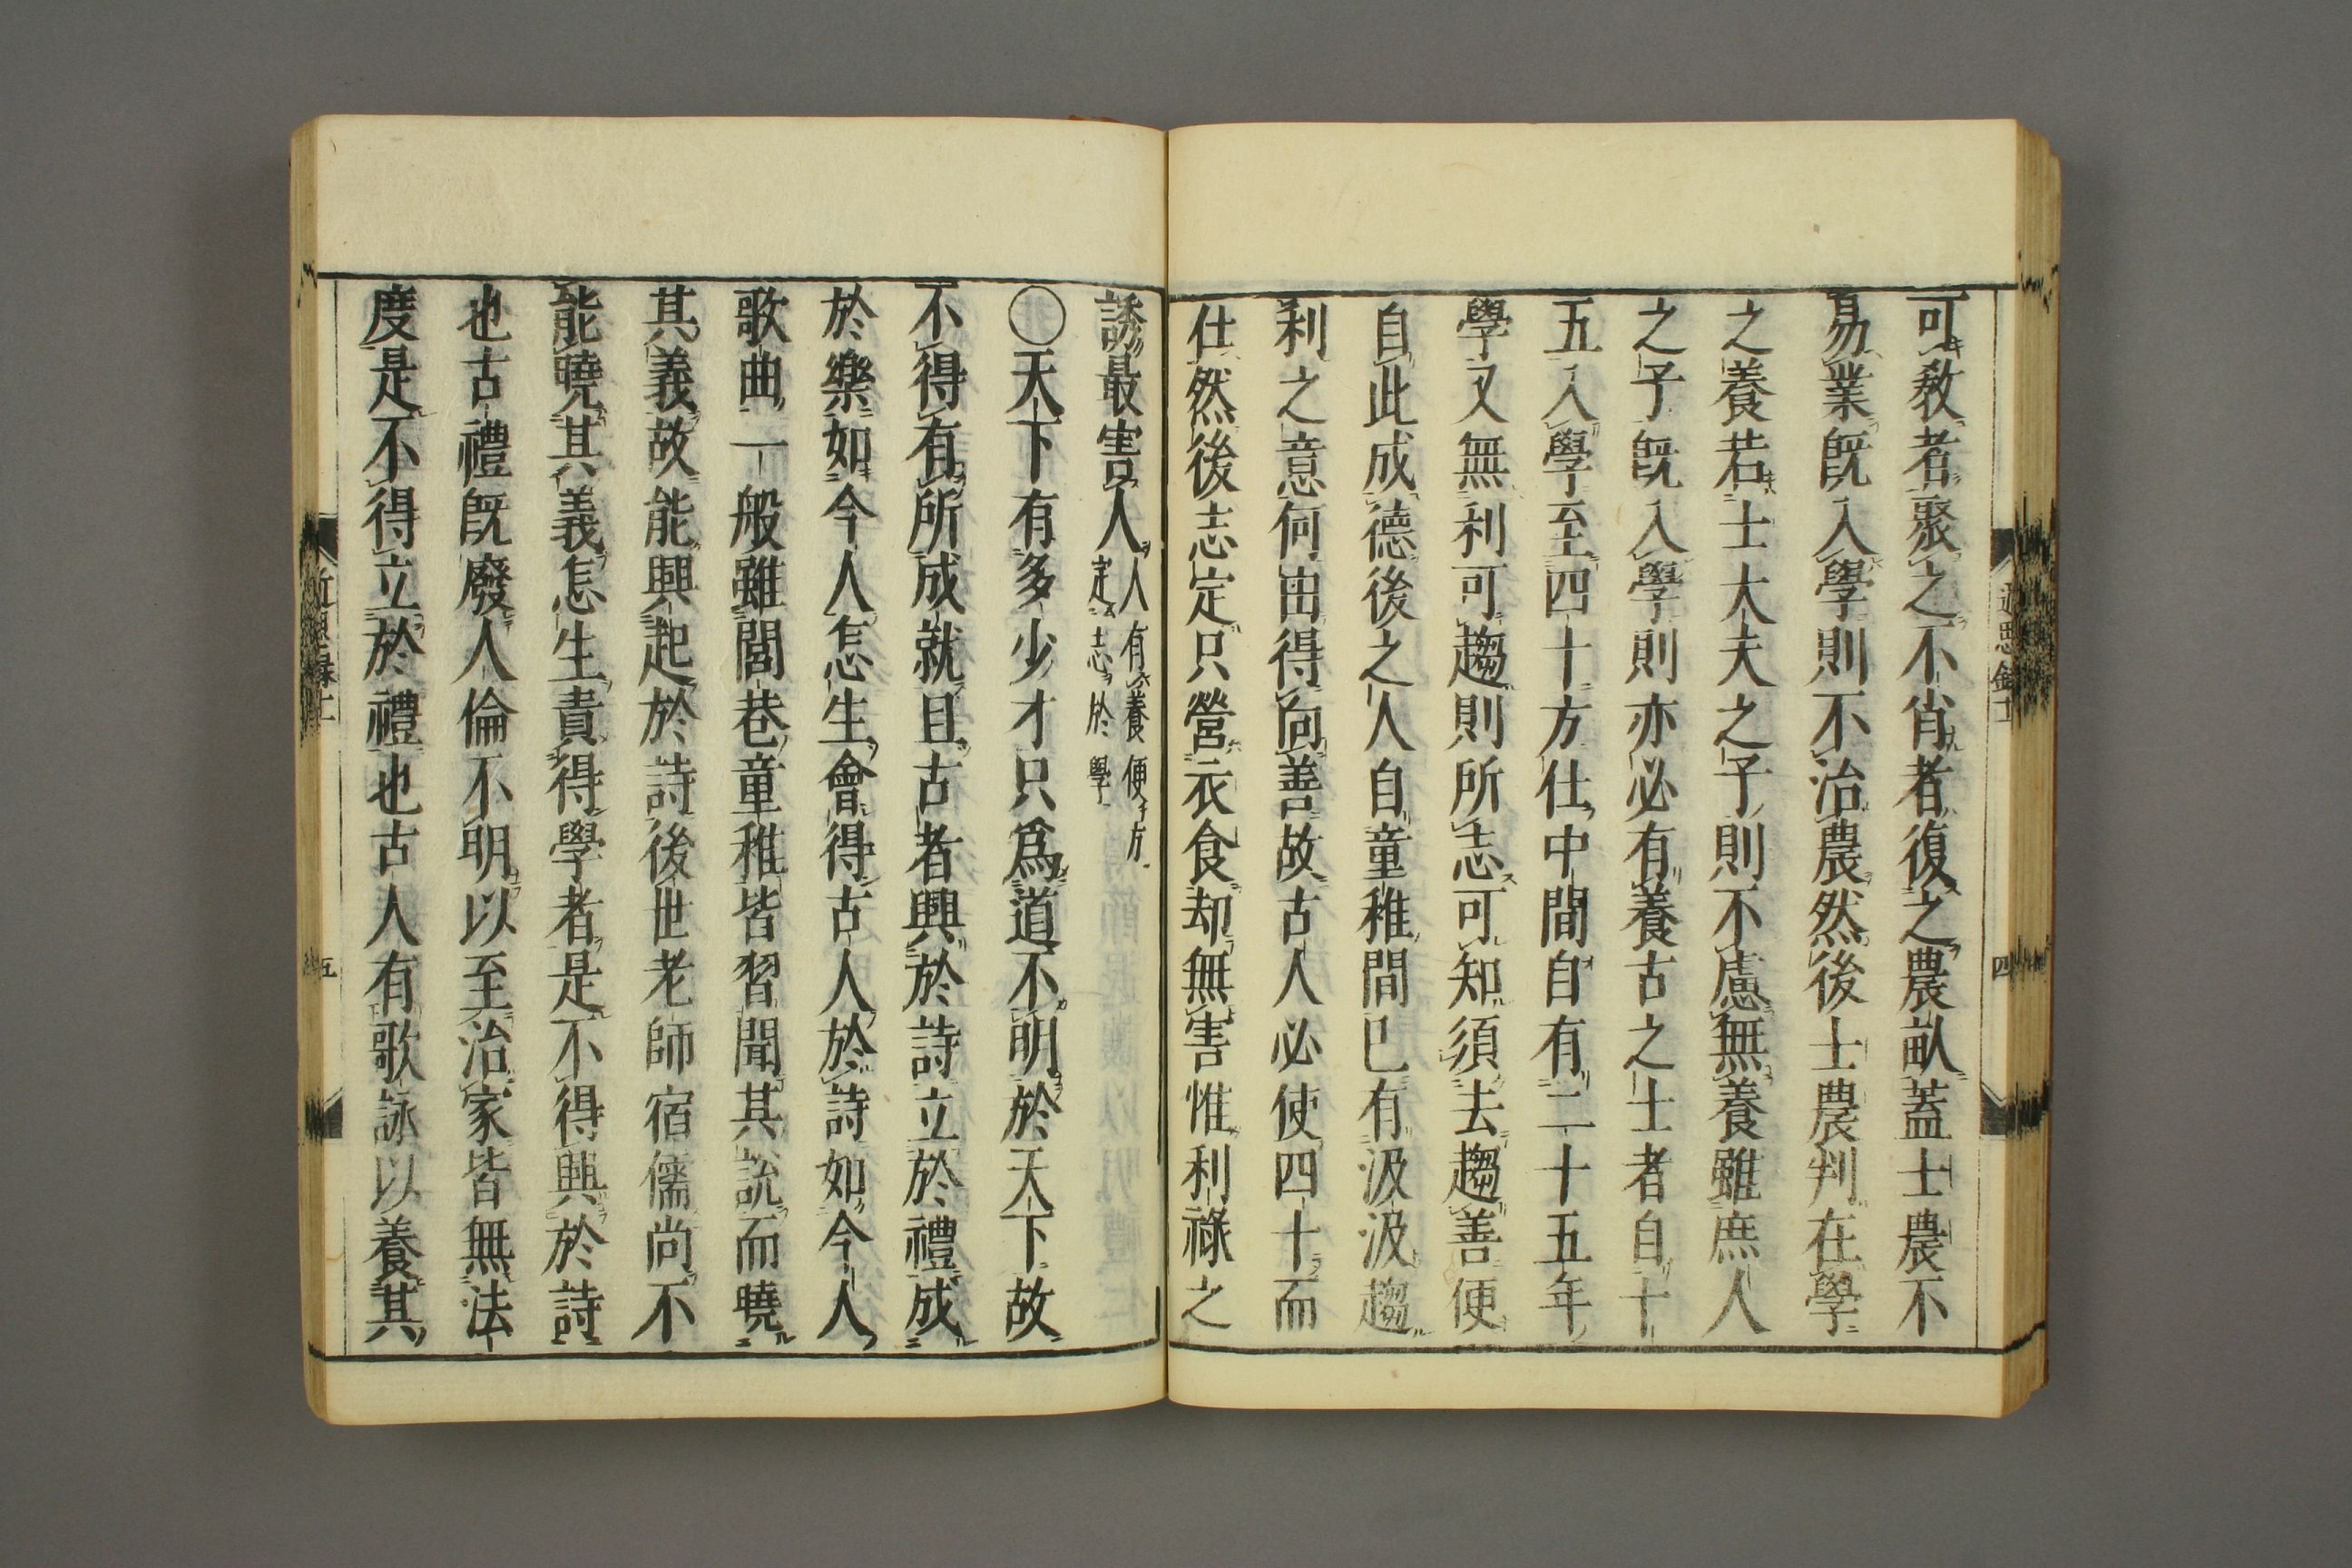 可教者聚之不肖者復之農畝蓋士農不
易業既入學則不治農然後士農判在學
之養若士大夫之子則不慮無養雖庶人
之子既入學則亦必有養古之士者自十
五入學至四十方仕中間自有二十五年
學又無利可趨則所志可知須去趨善便
自此成德後之人自童稚間已有汲汲趨
利之意何由得向善故古人必使四十而
仕然後志定只營衣食却無害惟利祿之
近思錄十一
四
誘最害人
人有養便方
定志於學
○天下有多少才只爲道不明於天下故
不得有所成就且古者興於詩立於禮成
於樂如今人怎生會得古人於詩如今人
歌曲一般雖閭巷童稚皆習聞其說而曉
其義故能興起於詩後世老師宿儒尚不
能曉其義怎生責得學者是不得興於詩
也古禮既廢人倫不明以至治家皆無法
度是不得立於禮也古人有歌詠以養其
近思錄十一
五